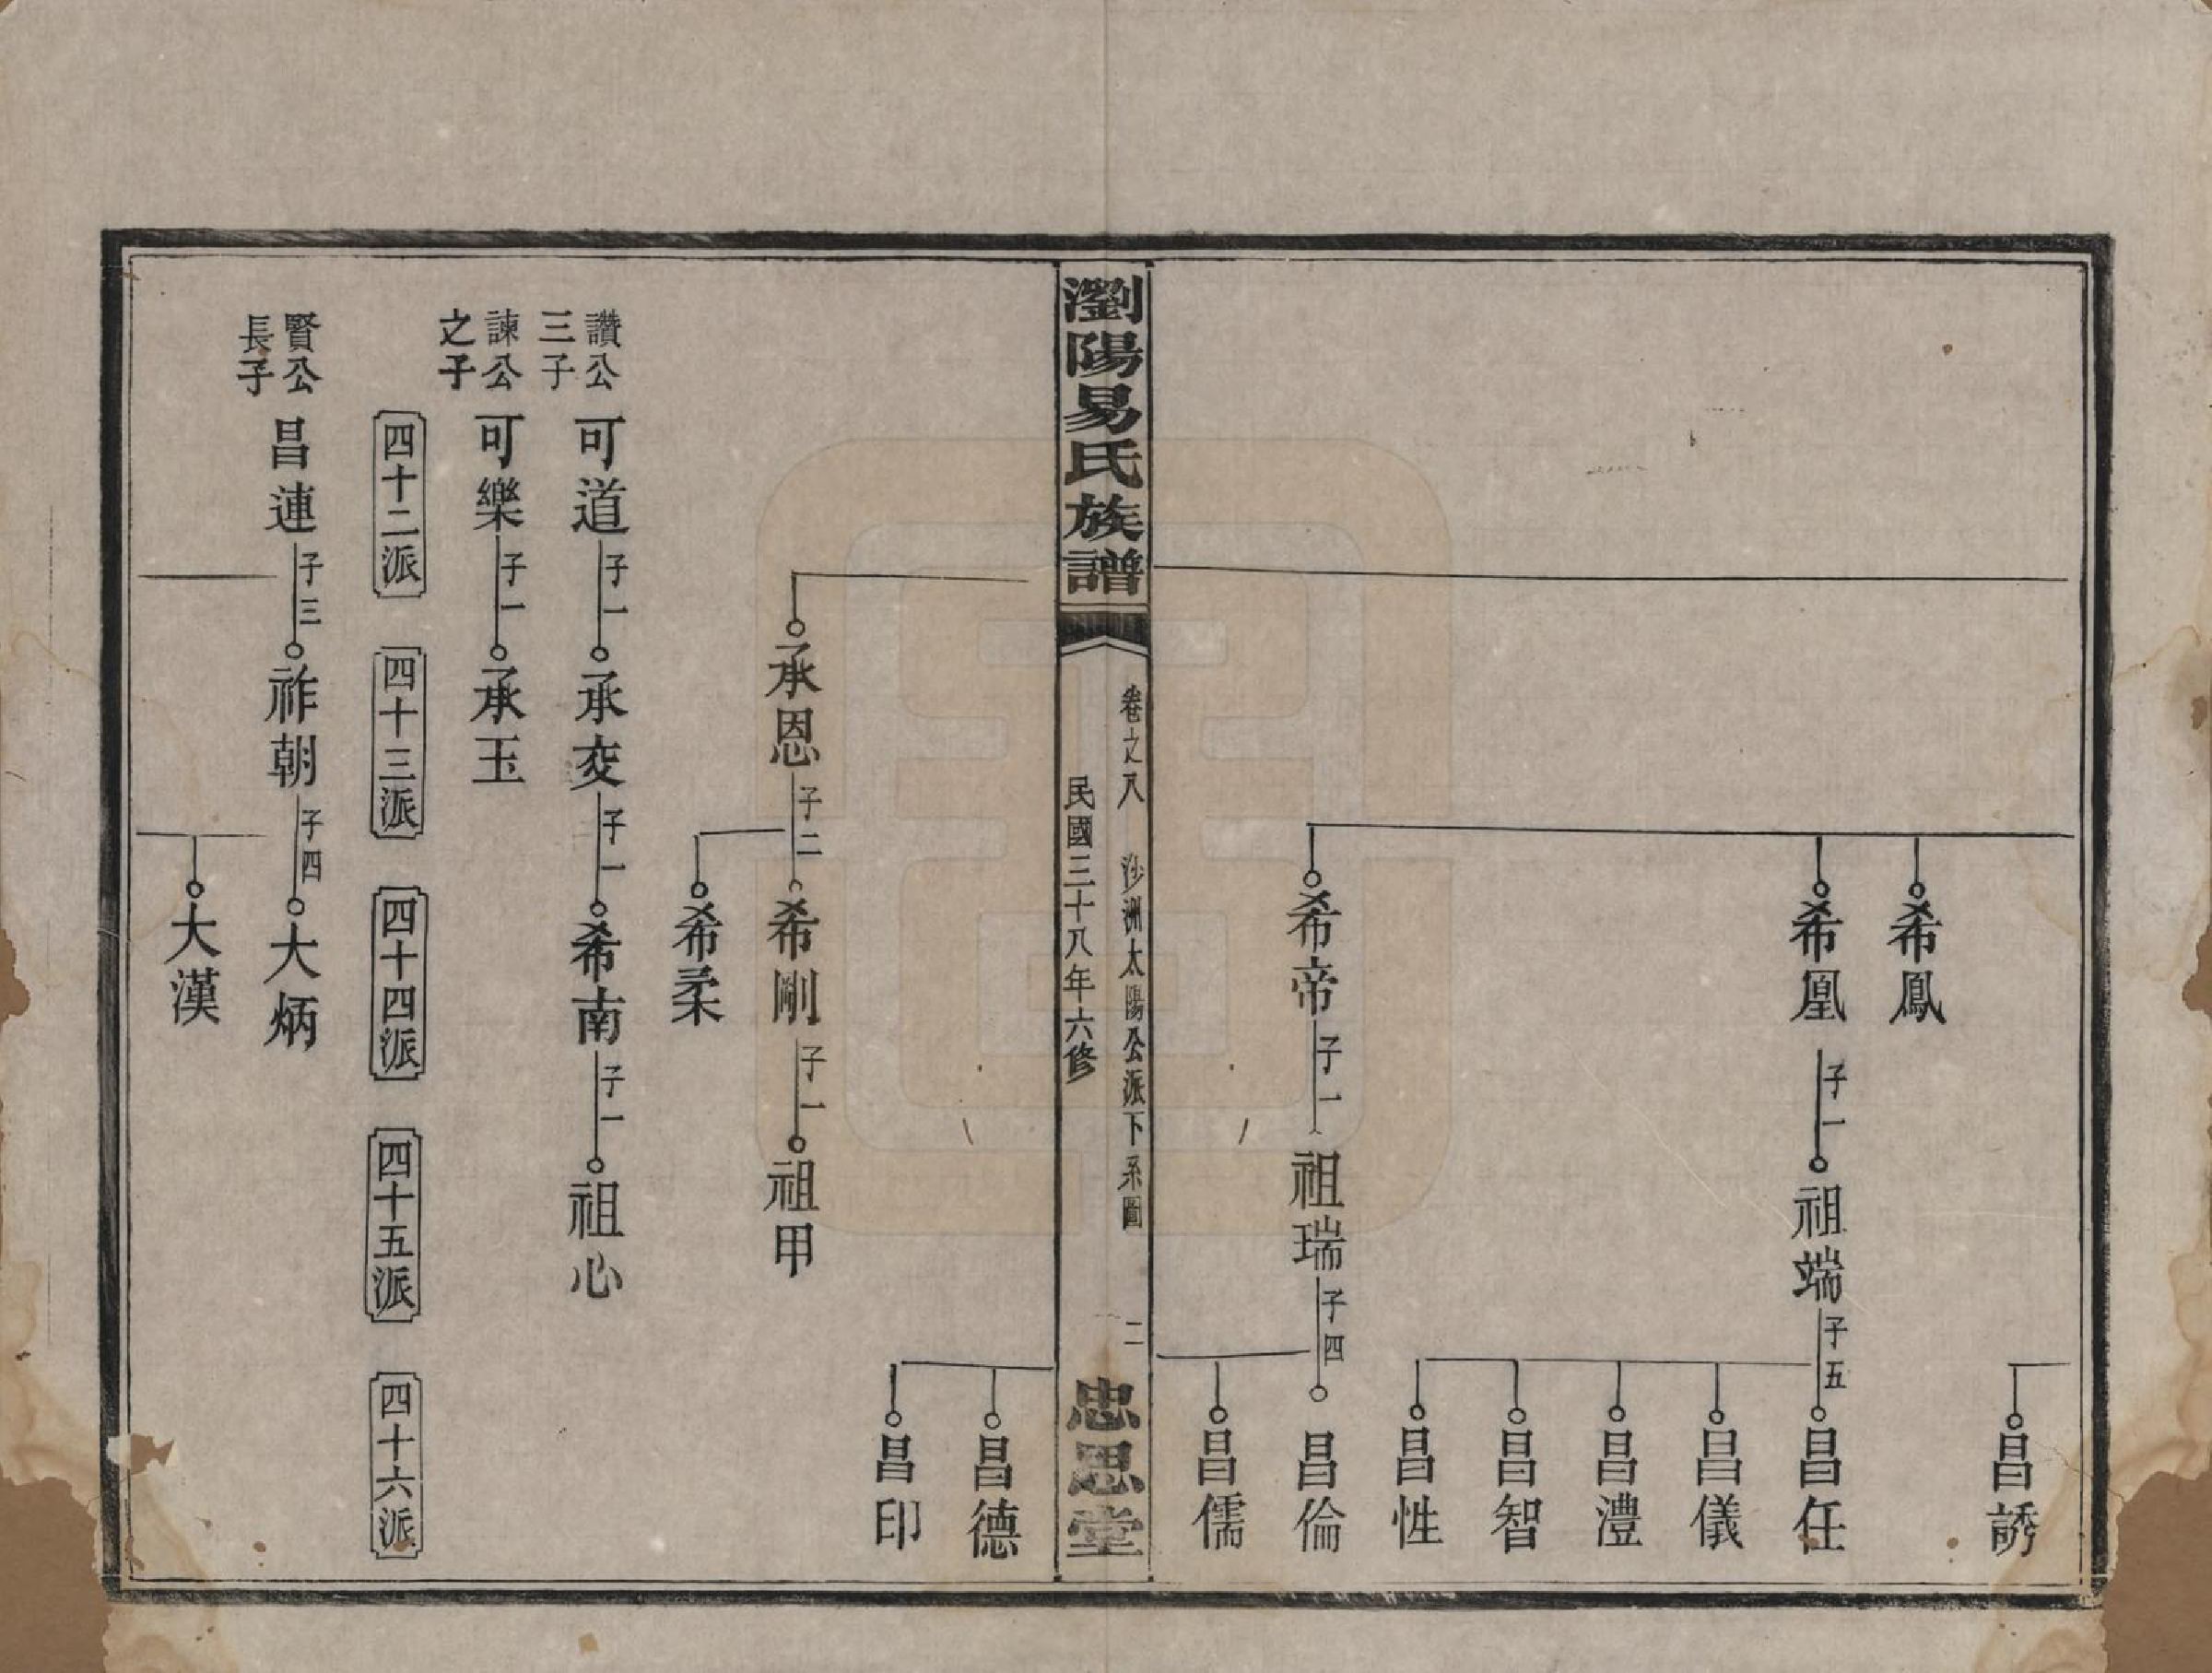 昌誘
希鳳
希凰
子一
祖端
子五
昌任
昌儀
昌澧
昌智
昌性
希帝
子一
祖瑞
子四
昌倫
昌儒
瀏陽易氏族譜
卷之八　沙洲太陽公派下系圖　二
民國三十八年六修
忠思堂
昌德
昌印
承恩
子二
希剛
子一
祖甲
希柔
讚公
三子
可道
子一
承交
子一
希南
子一
祖心
諫公
之子
可樂
子一
承玉
四十二派
四十三派
四十四派
四十五派
四十六派
賢公
長子
昌連
子三
祚朝
子四
大炳
大漢